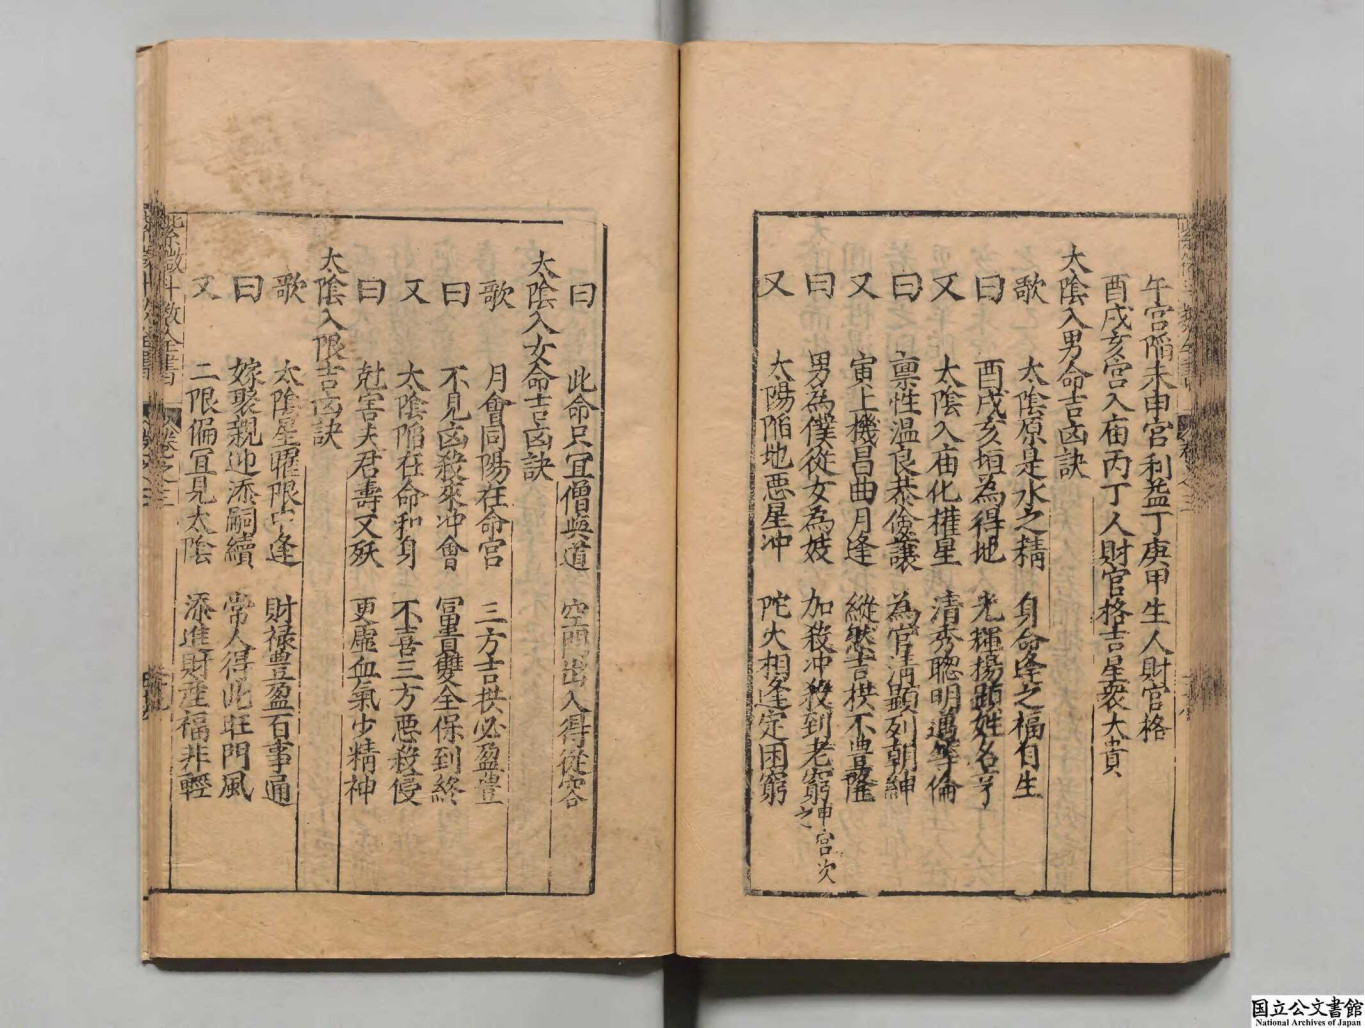 午宮陷未申宮利益丁庚甲生人財官格
酉戌亥宮入庙丙丁人財官格吉星衆大貴
太陰入男命吉凶訣
歌 太陰原是水之精 身命逢之福自生
曰 酉戌亥垣為得地 光輝揚顯姓名亨
又 太陰入庙化權星 清秀聦明邁等倫
曰 禀性温良恭儉讓 為官清顯列朝紳
又 寅上機昌曲月逢 縱然吉拱不豊隆
曰 男為僕從女為妓 加殺冲殺到老窮 申宮次之
又 太陽陷地惡星冲 陀火相逢定困窮
曰 此命只冝僧與道 空門出入得從容
太陰入女命吉凶訣
歌 月會同陽在命宮 三方吉拱必盈豊
曰 不見凶殺來冲會 冨貴雙全保到終
又 太陰陷在命和身 不喜三方惡殺侵
曰 尅害夫君壽又殀 更虛血氣少精神
太陰入限吉凶訣
歌 太陰星曜限中逢 財禄豊盈百事通
曰 嫁娶親迎添嗣續 常人得此旺門風
又 二限偏冝見太陰 添進財產福非輕
紫微斗數全書 卷之三
国立公文書館
National Archives of Japan